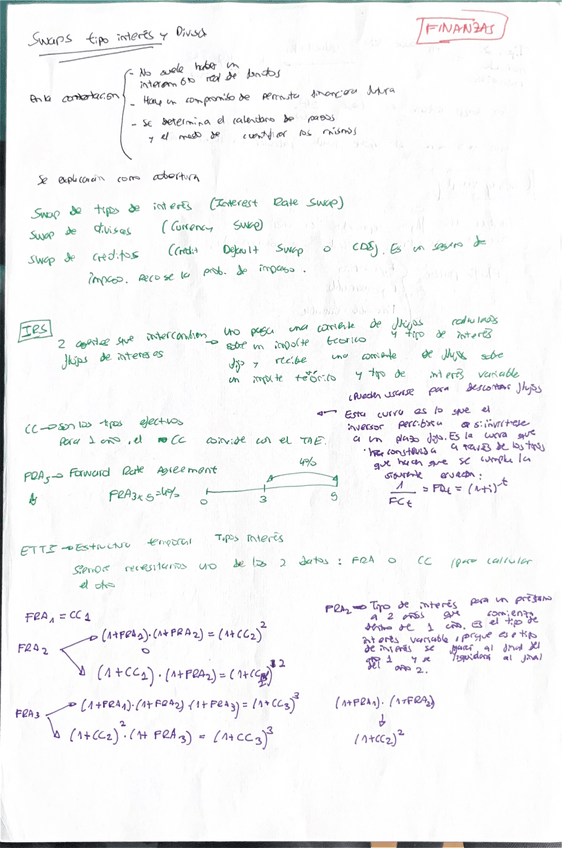 FINANZAS
Swaps tipo interés y Divisas
En la contratación
- No suele haber un
intercambio real de fondos
- Hay un compromiso de permuta financiera futura
- Se determina el calendario de pagos
y el modo de cuantificar los mismos
Se explicarán como cobertura
Swap de tipos de interés (Interest Rate Swap)
Swap de divisas (Currency Swap)
Swap de créditos (Credit Default Swap o CDS). Es un seguro de
impago. Recoge la prob. de impago.
IRS
2 agentes que intercambian
flujos de intereses
→ uno paga una corriente de flujos calculados
sobre un importe teorico y tipo de interés
fijo y recibe una corriente de flujos sobre
un importe teórico y tipo de interés variable
CC → son los tipos efectivos
Para 1 año, el CC coincide con el TAE.
Pueden usarse para descontar flujos
← Esta curva es lo que el
inversor percibiría si invirtiese
a un plazo fijo. Es la curva que
construida a través de los tipos
que hacen que se cumpla la
siguiente ecuación:
1/FCt = FDt = (1+i)^-t
FRAs → Forward Rate Agreement
FRA3x5=4%
4%
0 3 5
ETTI → Estructura temporal Tipos Interés
Siempre necesitarías uno de los 2 datos: FRA o CC (para calcular
el otro
FRA1 = CC1
FRA2
→ (1+FRA1)·(1+FRA2) = (1+CC2)^2
o
→ (1+CC1)·(1+FRA2) = (1+CC2)^2
FRA2 → Tipo de interés para un préstamo
a 2 años que comienza
dentro de 1 año. es el tipo de
interés variable, porque ese tipo
de interés se fijará al final del
año 1 y se liquidará al final
del año 2.
FRA3
→ (1+FRA1)·(1+FRA2)·(1+FRA3) = (1+CC3)^3
→ (1+CC2)^2·(1+FRA3) = (1+CC3)^3
(1+FRA1)·(1+FRA2)
↓
(1+CC2)^2